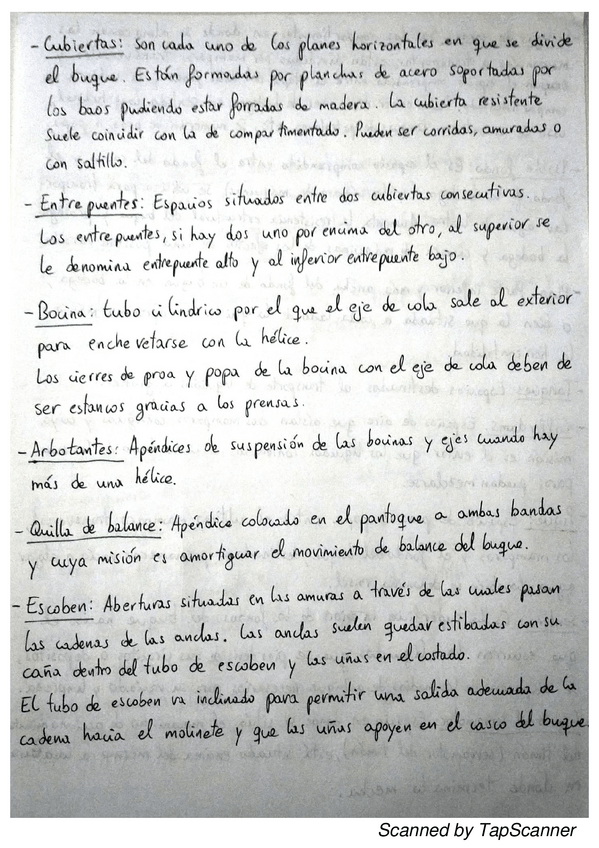 - Cubiertas: Son cada uno de los planes horizontales en que se divide
el buque. Están formadas por planchas de acero soportadas por
los baos pudiendo estar forradas de madera. La cubierta resistente
suele coincidir con la de compartimentado. Pueden ser corridas, amuradas o
con saltillo.
- Entre puentes: Espacios situados entre dos cubiertas consecutivas.
Los entrepuentes, si hay dos uno por encima del otro, al superior se
le denomina entrepuente alto y al inferior entrepuente bajo.
- Bocina: tubo cilíndrico por el que el eje de cola sale al exterior
para enchevetarse con la hélice.
Los cierres de proa y popa de la bocina con el eje de cola deben de
ser estancos gracias a los prensas.
- Arbotantes: Apéndices de suspensión de las bocinas y ejes cuando hay
más de una hélice.
- Quilla de balance: Apéndice colocado en el pantoque a ambas bandas
y cuya misión es amortiguar el movimiento de balance del buque.
- Escoben: Aberturas situadas en las amuras a través de las cuales pasan
las cadenas de las anclas. Las anclas suelen quedar estibadas con su
caña dentro del tubo de escoben y las uñas en el costado.
El tubo de escoben va inclinado para permitir una salida adecuada de la
cadena hacia el molinete y que las uñas apoyen en el casco del buque.
Scanned by TapScanner